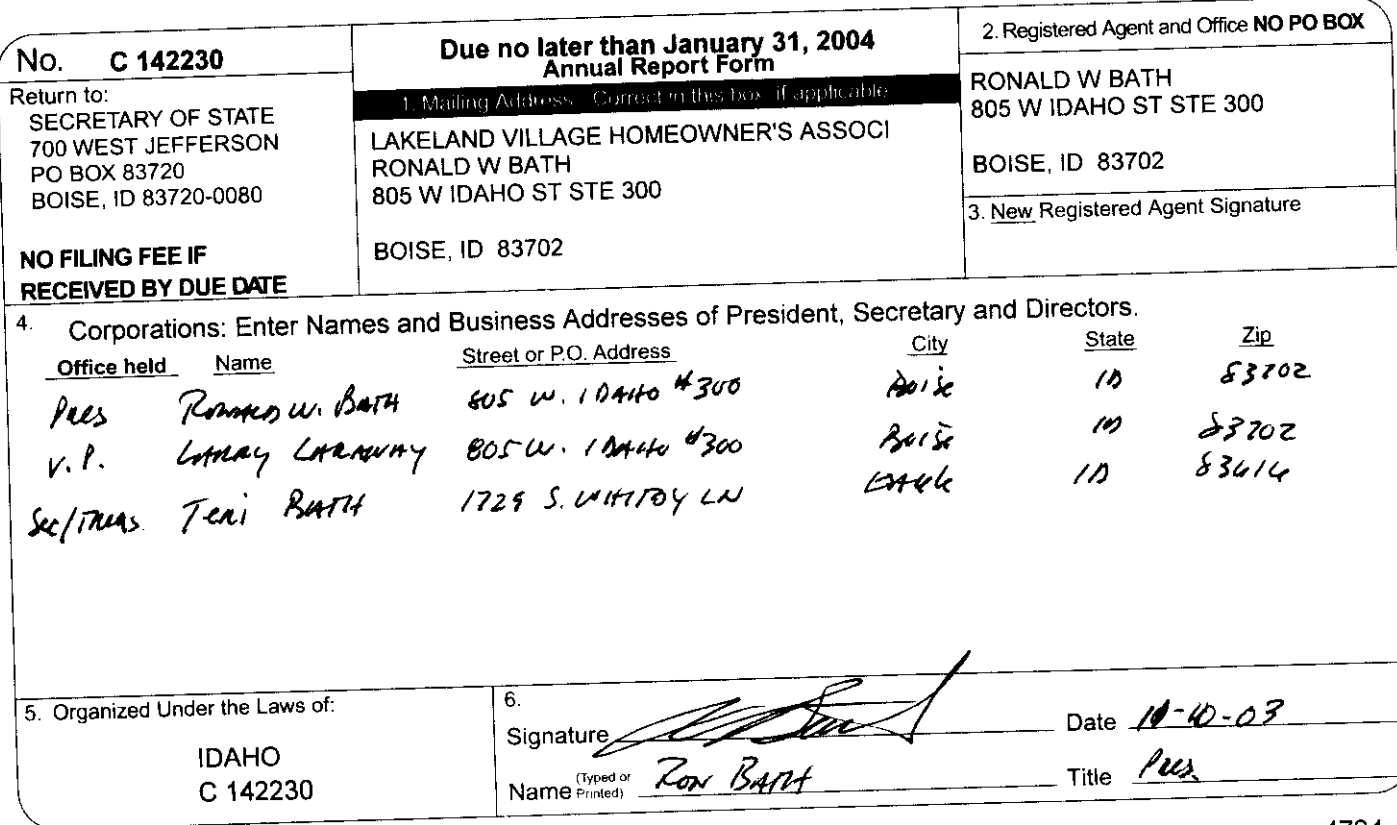 No. C 142230
Return to:
SECRETARY OF STATE
700 WEST JEFFERSON
PO BOX 83720
BOISE, ID 83720-0080
NO FILING FEE IF
RECEIVED BY DUE DATE
Due no later than January 31, 2004
Annual Report Form
1. Mailing Address. Correct in this box, if applicable
LAKELAND VILLAGE HOMEOWNER'S ASSOCI
RONALD W BATH
805 W IDAHO ST STE 300
BOISE, ID 83702
2. Registered Agent and Office NO PO BOX
RONALD W BATH
805 W IDAHO ST STE 300
BOISE, ID 83702
3. New Registered Agent Signature
4. Corporations: Enter Names and Business Addresses of President, Secretary and Directors.
Office held Name Street or P.O. Address City State Zip
Pres RONALD W. BATH 805 W. IDAHO #300 Boise ID 83702
V.P. LARRY LARAWAY 805 W. IDAHO #300 Boise ID 83702
Sec/Treas. Teri BATH 1729 S. LN EAGLE ID 83616
5. Organized Under the Laws of:
IDAHO
C 142230
6.
Signature Date -10-03
Name (Typed or Printed) RON BATH Title Pres.